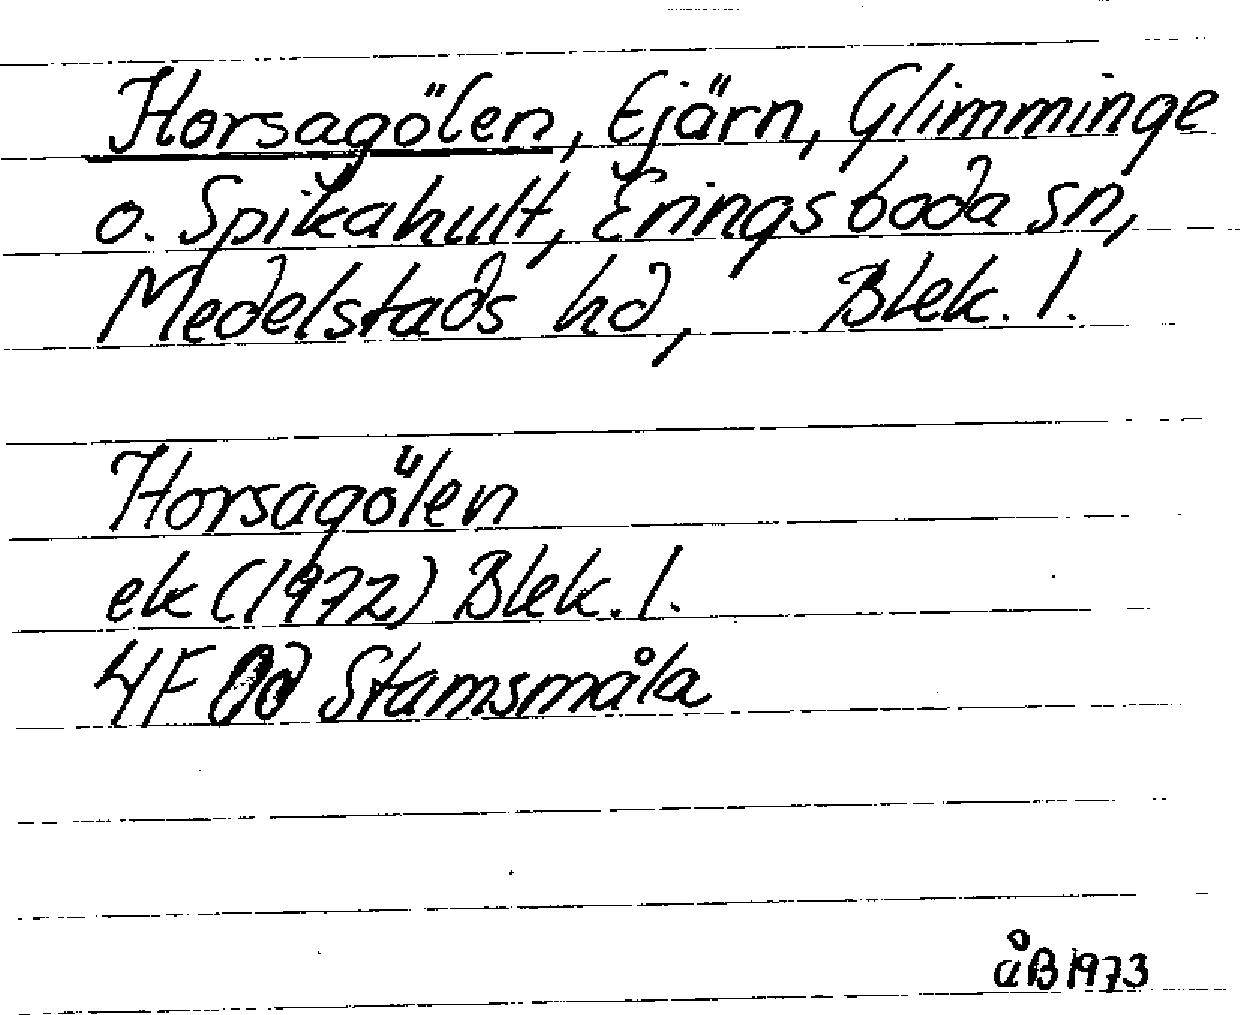 Horsagölen, Ejärn, Glimminge
o. Spikahult, Eringsboda sn,
Medelstads hd, Blek. l.
Horsagölen
ek (1972) Blek. l.
4F 0d Stamsmåla
åB 1973